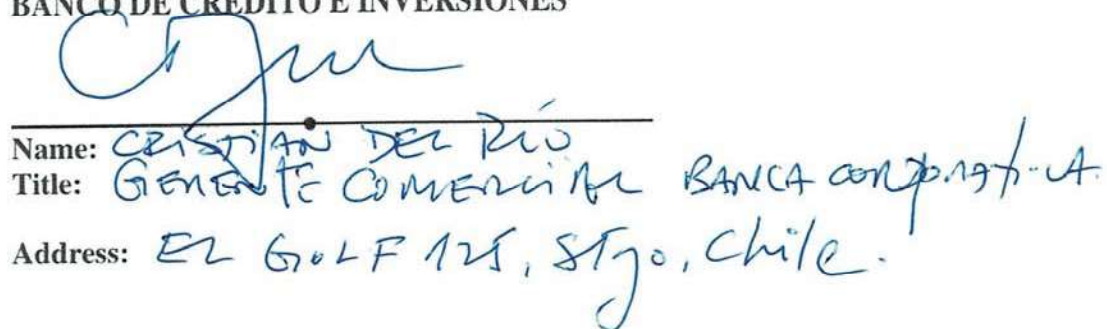 BANCO DE CREDITO E INVERSIONES
Name: CRISTIAN DEL RÍO
Title: GERENTE COMERCIAL BANCA CORPORATIVA.
Address: EL GOLF 125, STgo, Chile.